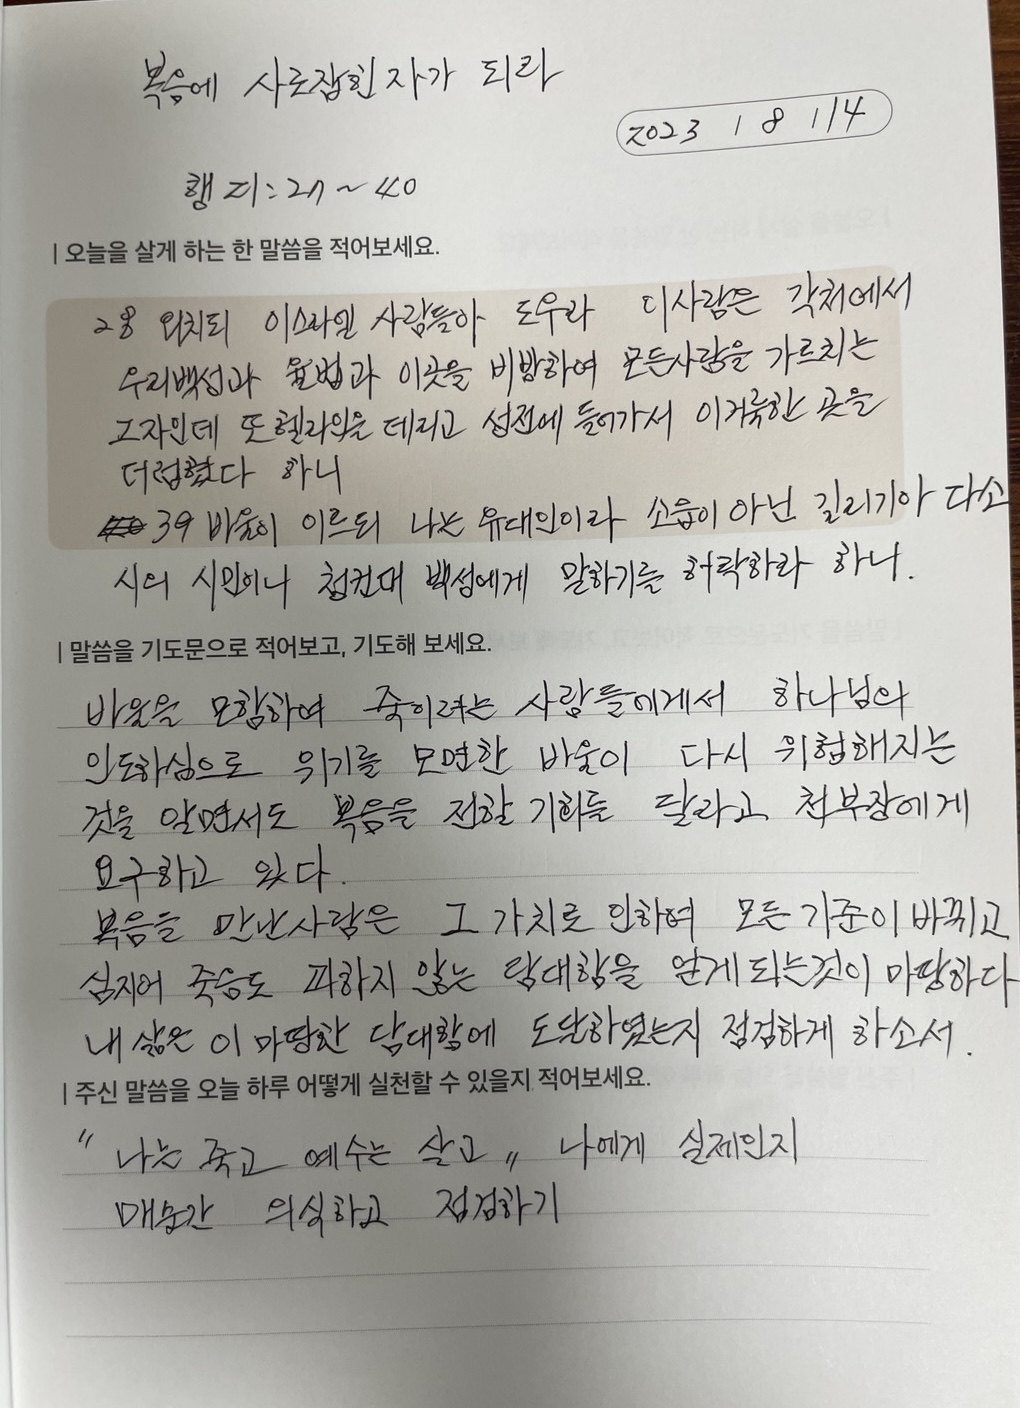 복음에 사로잡힌 자가 되라
2023 / 8 / 14
행 21:27~40
| 오늘을 살게 하는 한 말씀을 적어보세요.
28 외치되 이스라엘 사람들아 도우라 이사람은 각처에서
우리백성과 율법과 이곳을 비방하여 모든사람을 가르치는
그자인데 또 헬라인을 데리고 성전에 들어가서 이거룩한 곳을
더럽혔다 하니
39 바울이 이르되 나는 유대인이라 소읍이 아닌 길리기아 다소
시의 시민이니 청컨대 백성에게 말하기를 허락하라 하니.
| 말씀을 기도문으로 적어보고, 기도해 보세요.
바울을 모함하여 죽이려는 사람들에게서 하나님의
인도하심으로 위기를 모면한 바울이 다시 위험해지는
것을 알면서도 복음을 전할 기회를 달라고 천부장에게
요구하고 있다.
복음을 만난사람은 그 가치로 인하여 모든 기준이 바뀌고
심지어 죽음도 피하지 않는 담대함을 얻게 되는것이 마땅하다
내 삶은 이 마땅한 담대함에 도달하였는지 점검하게 하소서.
| 주신 말씀을 오늘 하루 어떻게 실천할 수 있을지 적어보세요.
" 나는 죽고 예수는 살고 " 나에게 실제인지
매순간 의식하고 점검하기